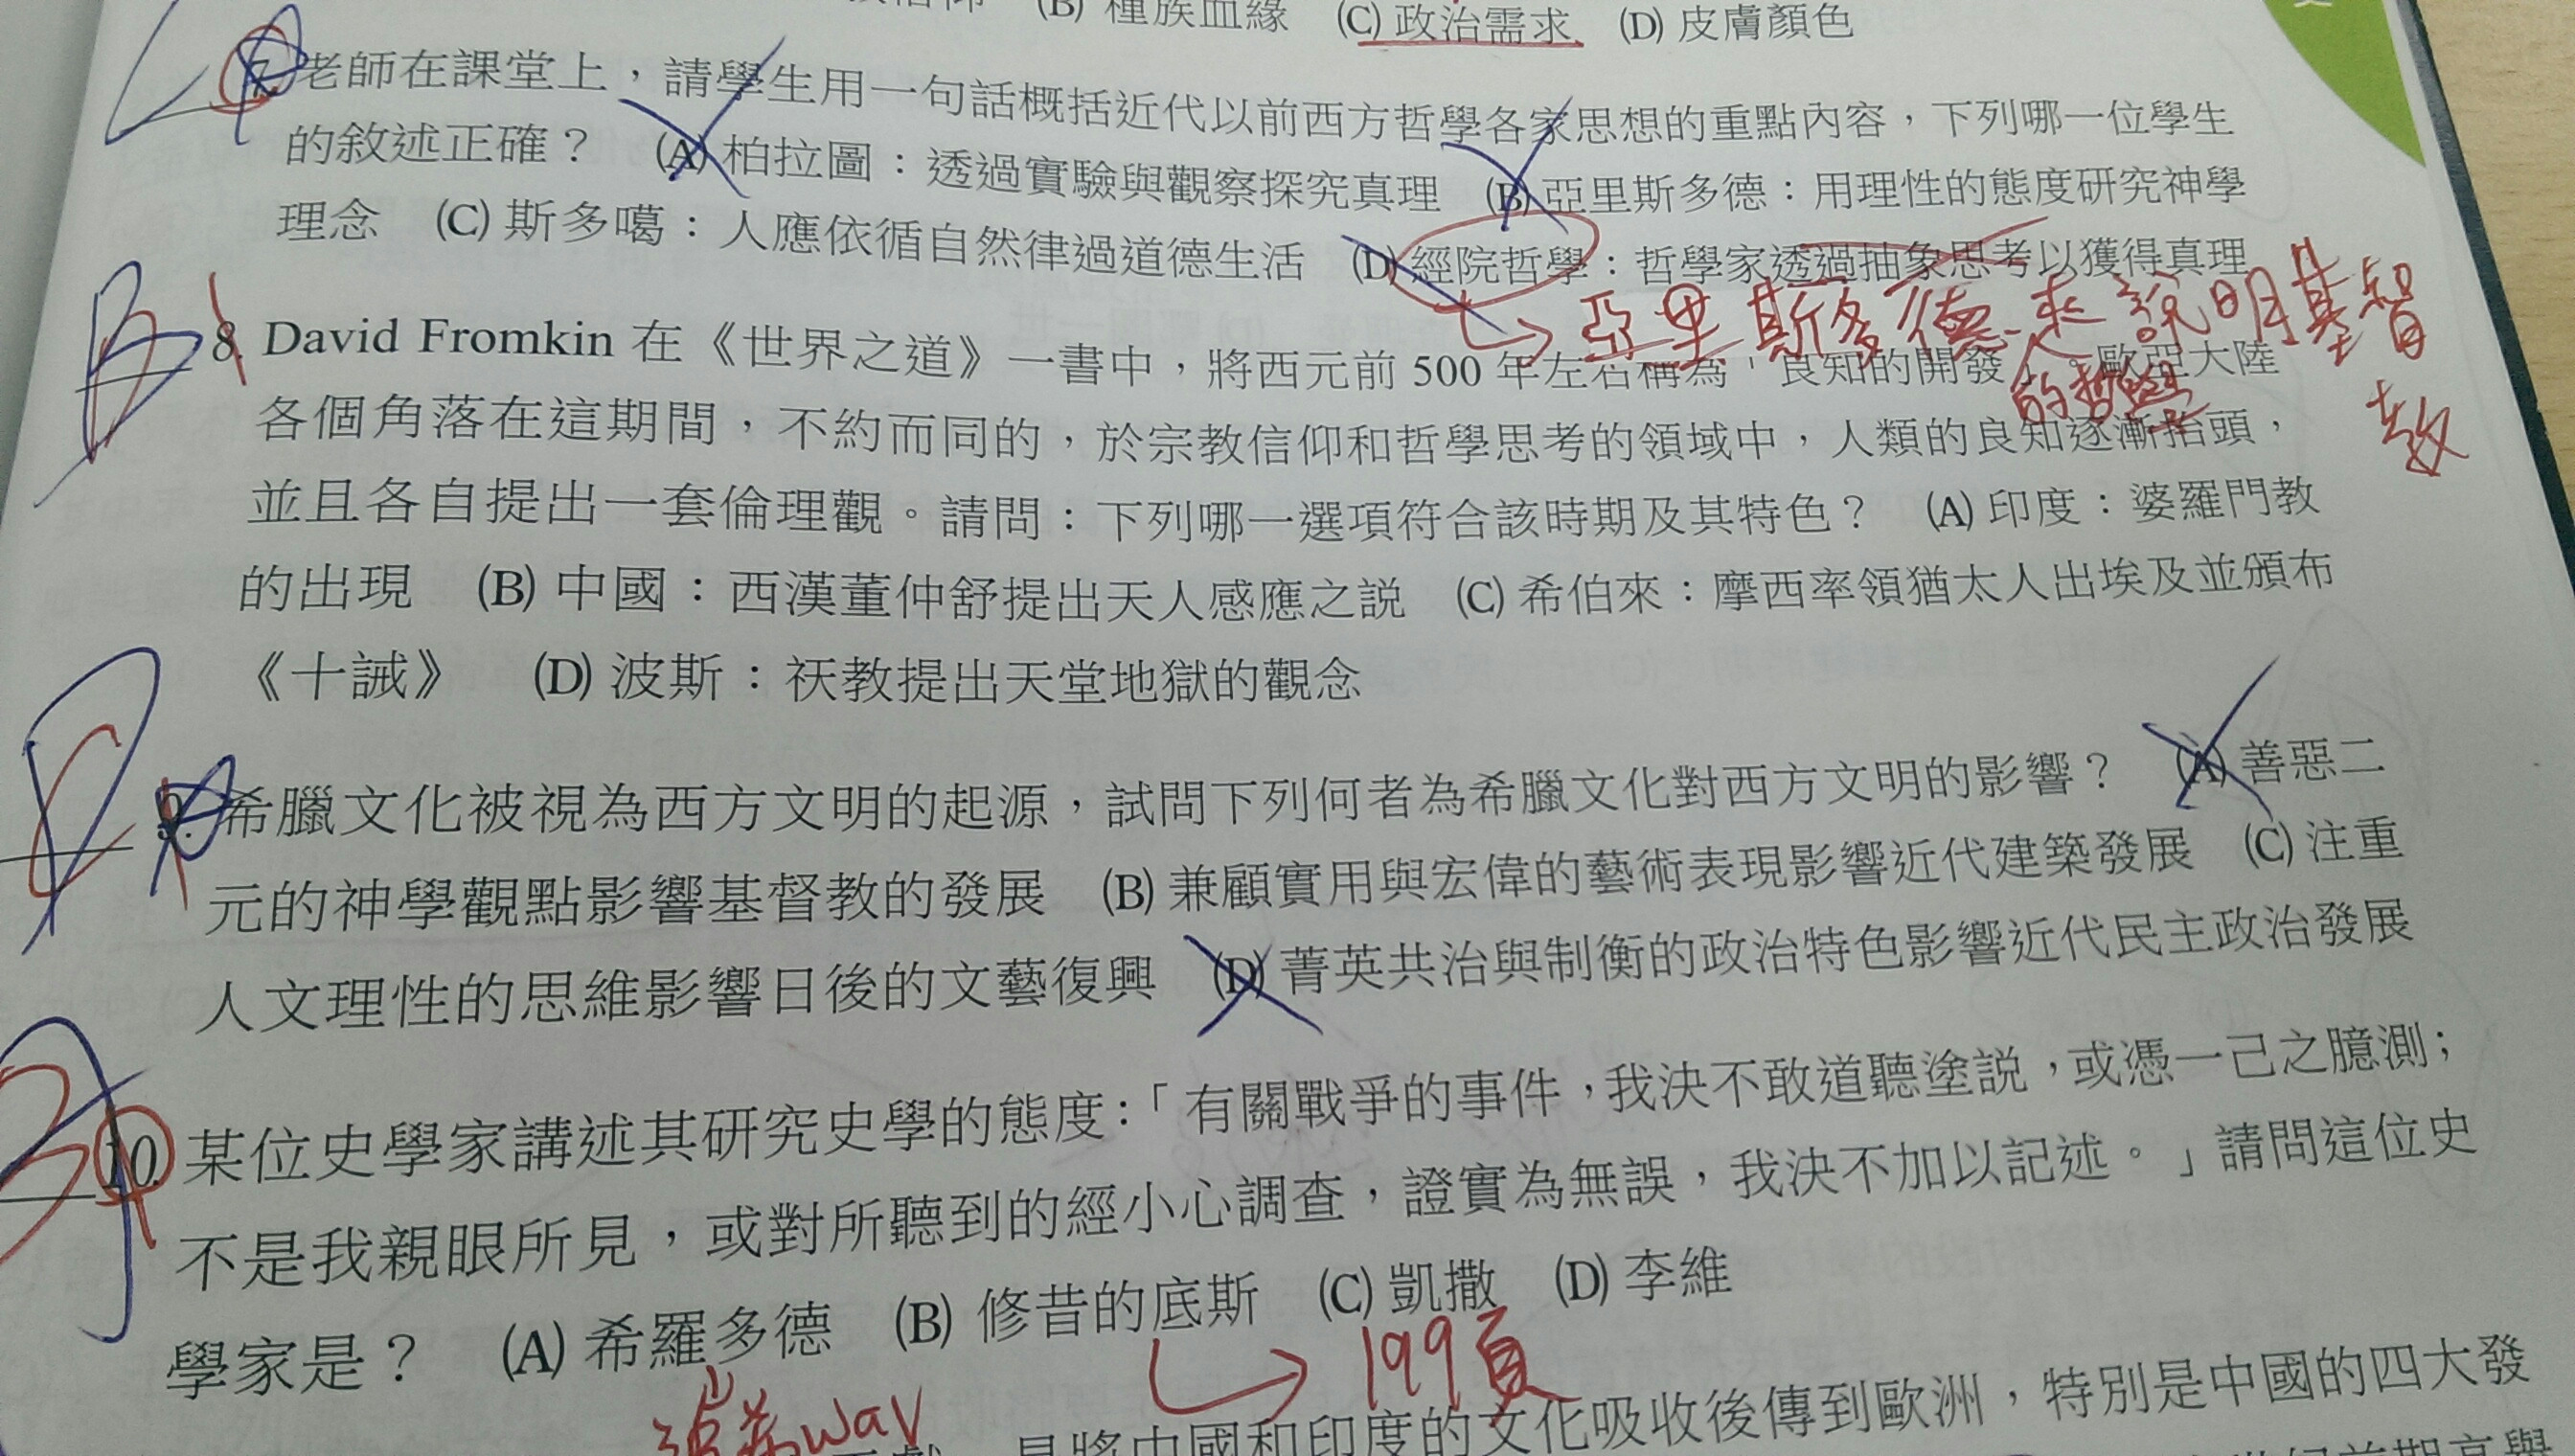 (B) 種族血緣 (C) 政治需求 (D) 皮膚顏色
7. 老師在課堂上，請學生用一句話概括近代以前西方哲學各家思想的重點內容，下列哪一位學生
的敘述正確？ (A) 柏拉圖：透過實驗與觀察探究真理 (B) 亞里斯多德：用理性的態度研究神學
理念 (C) 斯多噶：人應依循自然律過道德生活 (D) 經院哲學：哲學家透過抽象思考以獲得真理
亞里斯多德來說明基督
的哲學
教
B
8. David Fromkin 在《世界之道》一書中，將西元前 500 年左右稱為「良知的開發」。歐亞大陸
各個角落在這期間，不約而同的，於宗教信仰和哲學思考的領域中，人類的良知逐漸抬頭，
並且各自提出一套倫理觀。請問：下列哪一選項符合該時期及其特色？ (A) 印度：婆羅門教
的出現 (B) 中國：西漢董仲舒提出天人感應之說 (C) 希伯來：摩西率領猶太人出埃及並頒布
《十誡》 (D) 波斯：祆教提出天堂地獄的觀念
C
9. 希臘文化被視為西方文明的起源，試問下列何者為希臘文化對西方文明的影響？ (A) 善惡二
元的神學觀點影響基督教的發展 (B) 兼顧實用與宏偉的藝術表現影響近代建築發展 (C) 注重
人文理性的思維影響日後的文藝復興 (D) 菁英共治與制衡的政治特色影響近代民主政治發展
B
10. 某位史學家講述其研究史學的態度：「有關戰爭的事件，我決不敢道聽塗說，或憑一己之臆測；
不是我親眼所見，或對所聽到的經小心調查，證實為無誤，我決不加以記述。」請問這位史
學家是？ (A) 希羅多德 (B) 修昔的底斯 (C) 凱撒 (D) 李維
199頁
波希war
是將中國和印度的文化吸收後傳到歐洲，特別是中國的四大發